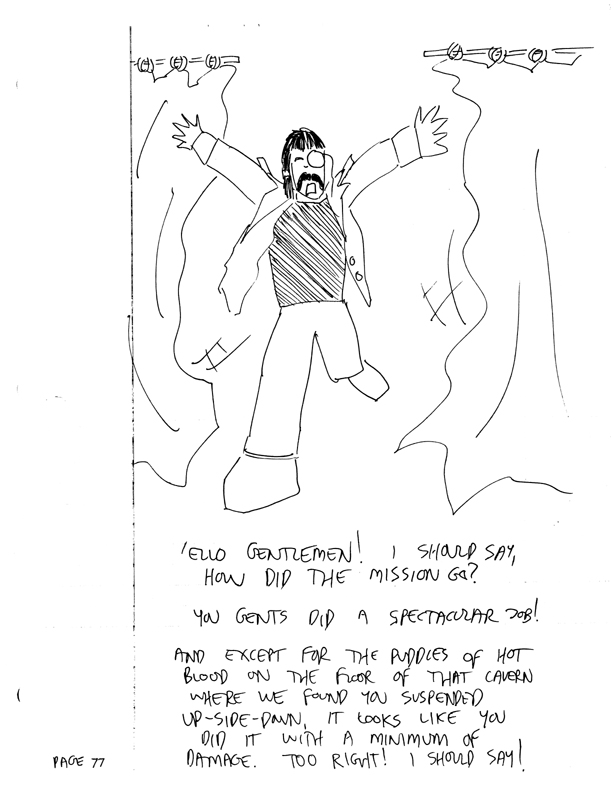 'ELLO GENTLEMEN! I SHOULD SAY,
HOW DID THE MISSION GO?
YOU GENTS DID A SPECTACULAR JOB!
AND EXCEPT FOR THE PUDDLES OF HOT
BLOOD ON THE FLOOR OF THAT CAVERN
WHERE WE FOUND YOU SUSPENDED
UP-SIDE-DOWN, IT LOOKS LIKE YOU
DID IT WITH A MINIMUM OF
DAMAGE. TOO RIGHT! I SHOULD SAY!
PAGE 77